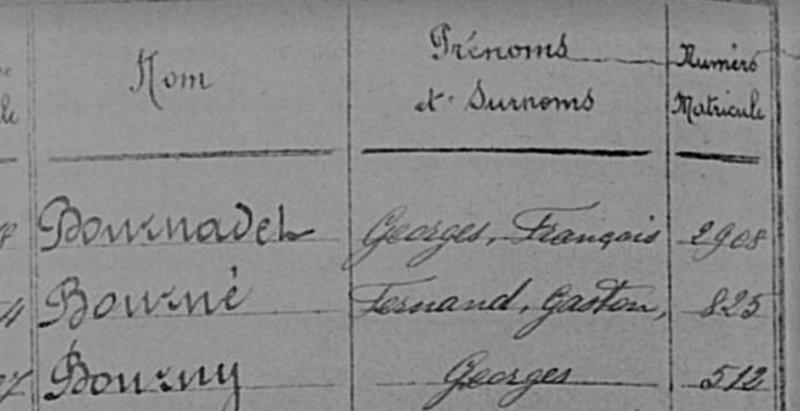 Nom Prénoms et Surnoms Numéro Matricule
Bournadet Georges, François 2908
Bourné Fernand, Gaston, 825
Bourny Georges 512